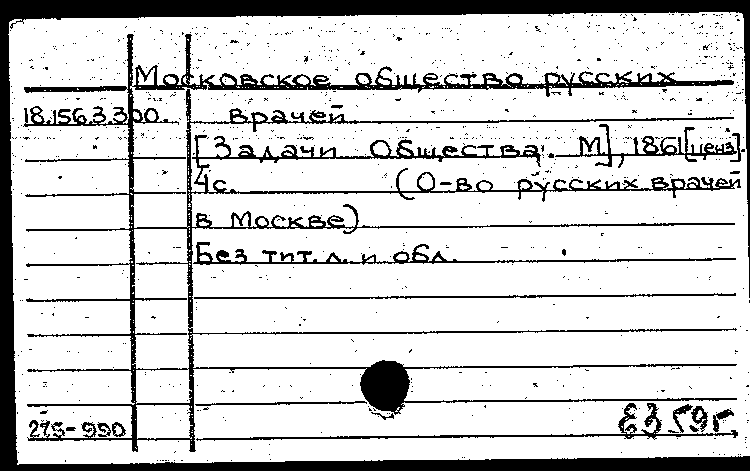 Московское общество русских
18.156.3.300. врачей.
[Задачи Общества. М], 1861 [ценз].
4с. (О-во русских врачей
в Москве)
Без тит. л. и обл.
275-990